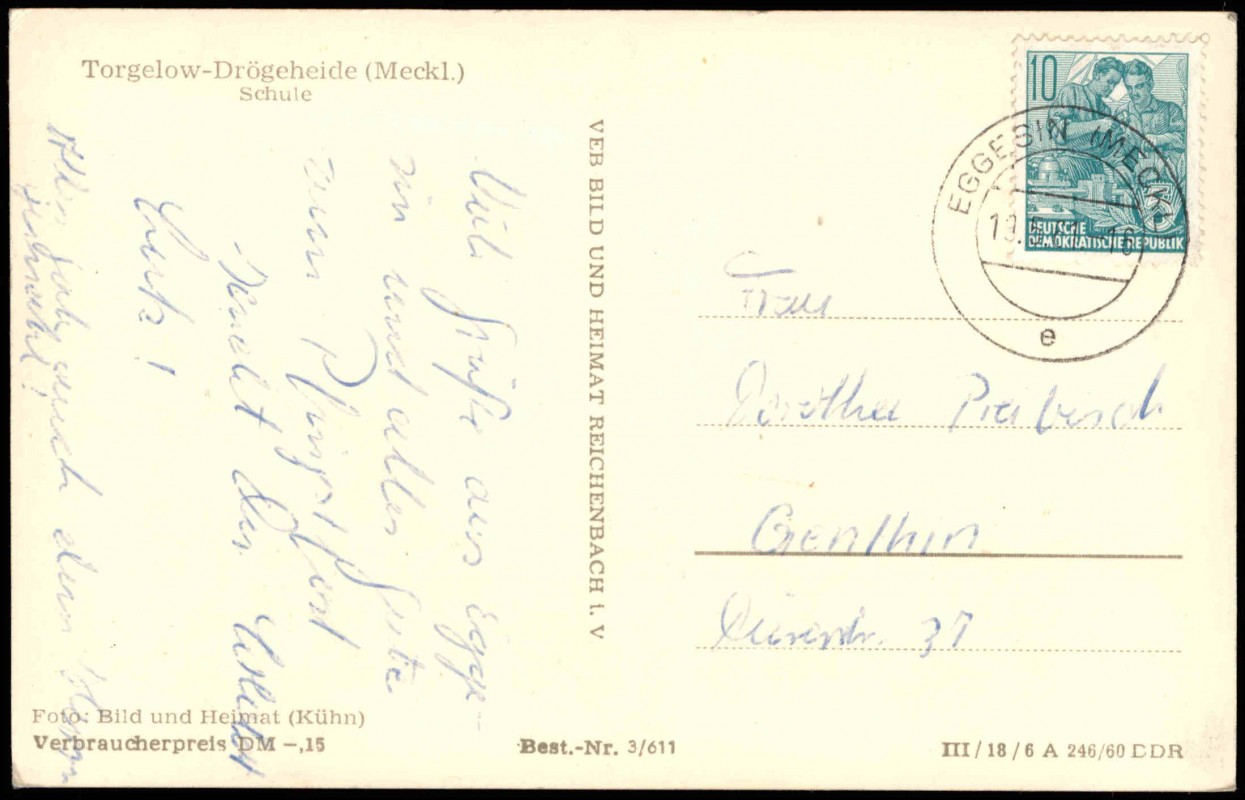 Torgelow-Drögeheide (Meckl.)
Schule
Viele Grüße aus Egge-
sin und alles Gute
zum Pfingstfest
sendet Dir
Lutz!
nach dem
VEB BILD UND HEIMAT REICHENBACH i. V
10
DEUTSCHE
DEMOKRATISCHE REPUBLIK
EGGESIN (MECKL
e
Frau
Dorothea
Genthin
37
Foto: Bild und Heimat (Kühn)
Verbraucherpreis DM –,15
Best.-Nr. 3/611
III/18/6 A 246/60 DDR